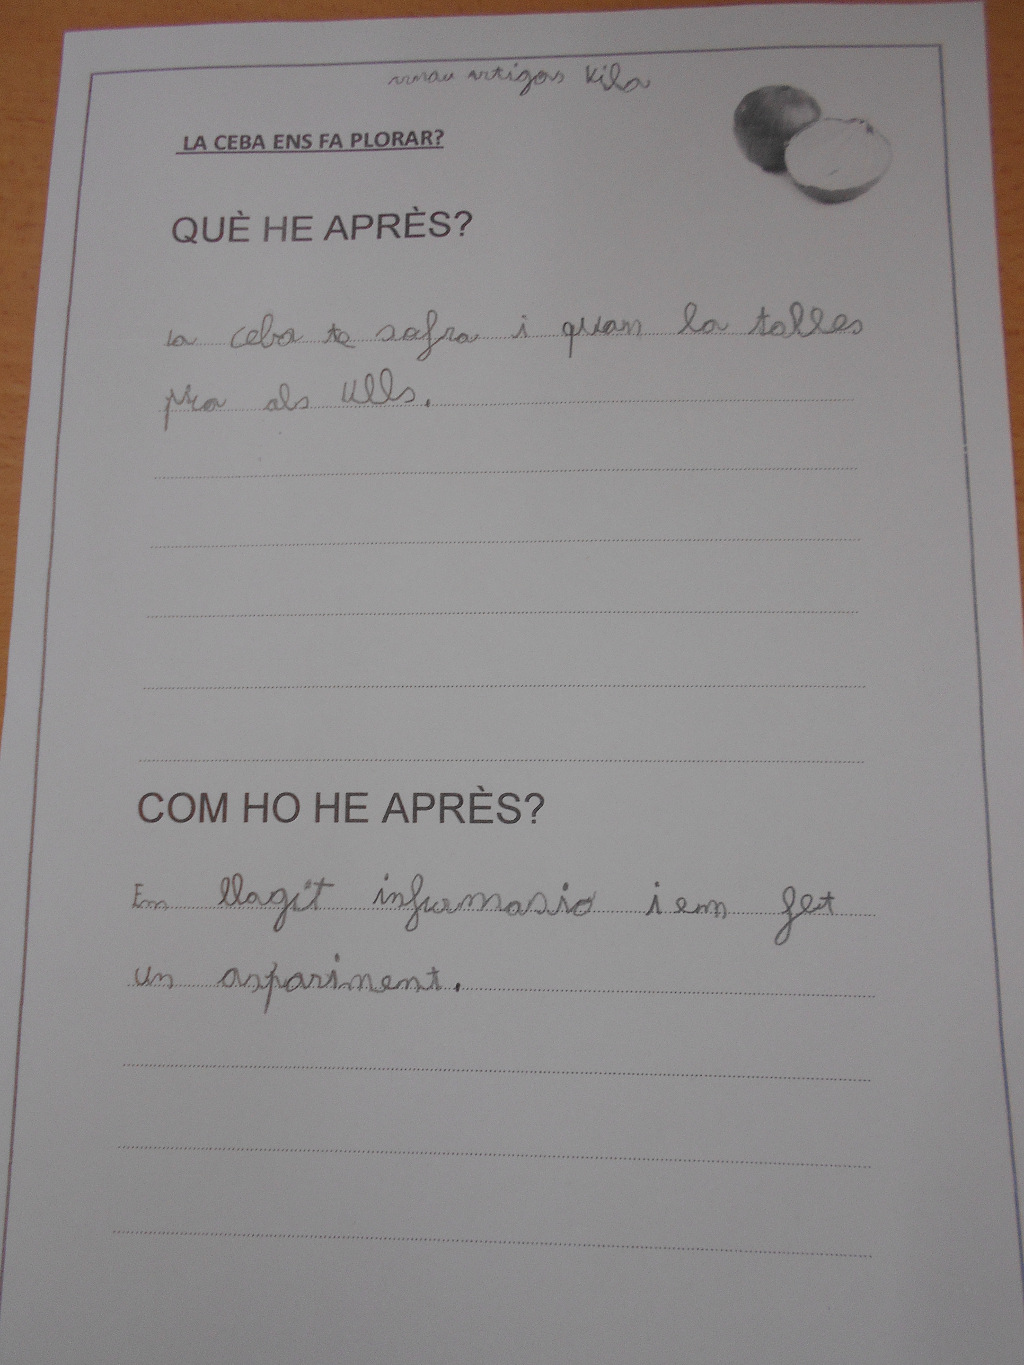 arnau artigas Vila
LA CEBA ENS FA PLORAR?
QUÈ HE APRÈS?
la ceba te sofra i quan la talles
pica als ulls.
COM HO HE APRÈS?
Em llagit infurmasio i em fet
un aspariment.